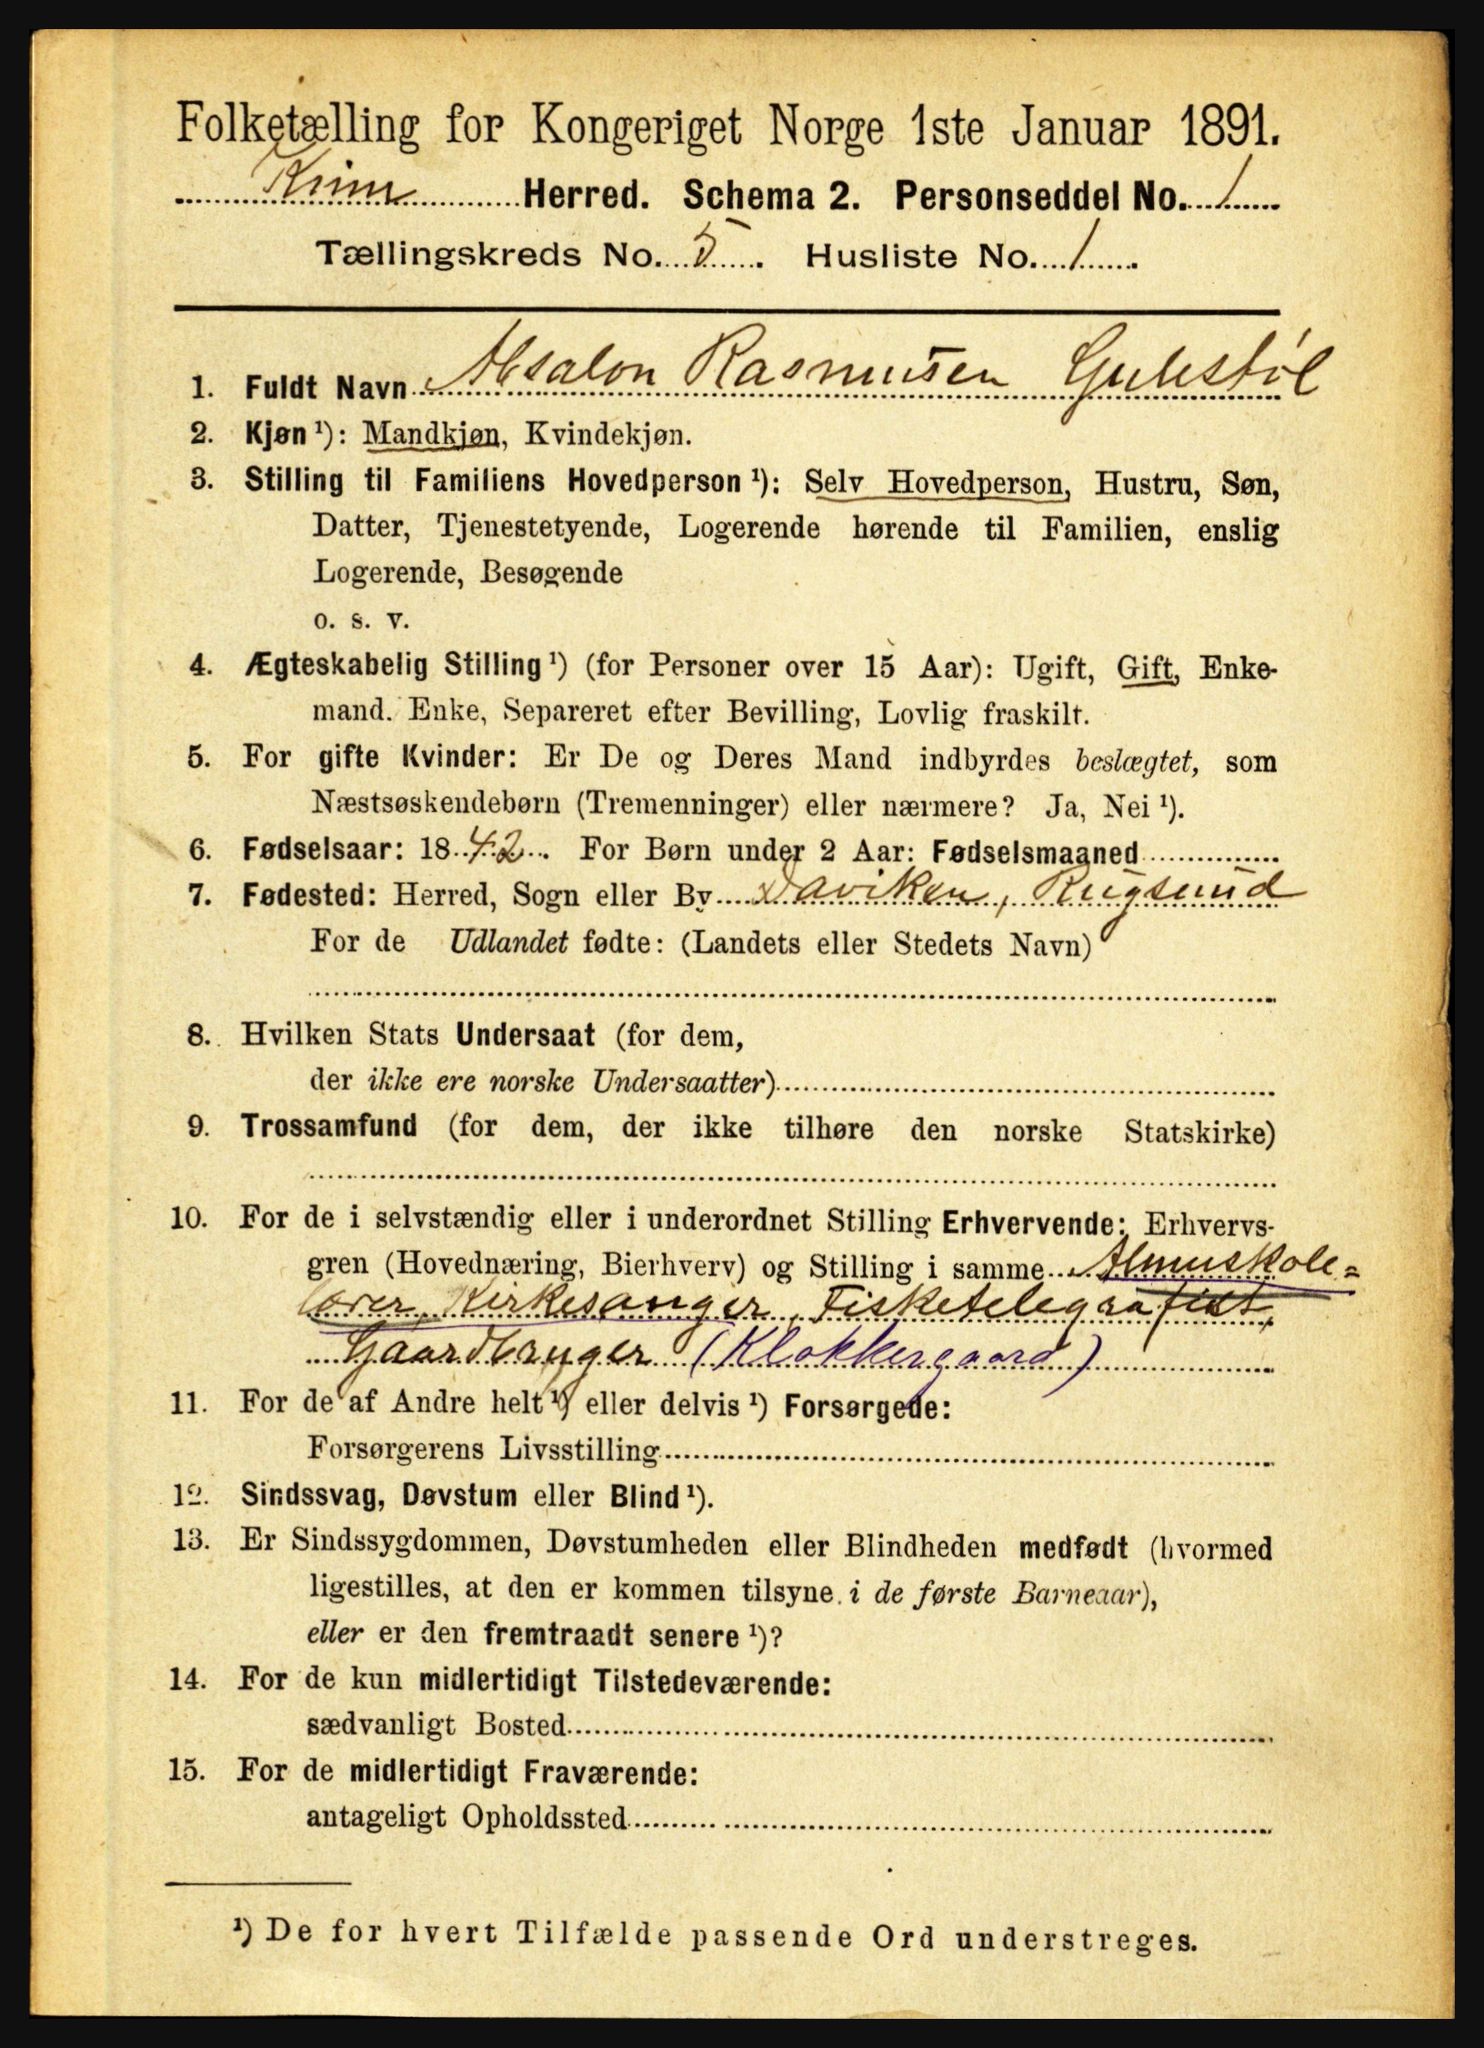 Folketælling for Kongeriget Norge 1ste Januar 1891.
Kinn Herred. Schema 2. Personseddel No. 1
Tællingskreds No. 5. Husliste No. 1.
1. Fuldt Navn Absalon Rasmussen Gulestøl
2. Kjøn ¹): Mandkjøn, Kvindekjøn.
3. Stilling til Familiens Hovedperson ¹): Selv Hovedperson, Hustru, Søn,
Datter, Tjenestetyende, Logerende hørende til Familien, enslig
Logerende, Besøgende
o. s. v.
4. Ægteskabelig Stilling ¹) (for Personer over 15 Aar): Ugift, Gift, Enke-
mand. Enke, Separeret efter Bevilling, Lovlig fraskilt.
5. For gifte Kvinder: Er De og Deres Mand indbyrdes beslægtet, som
Næstsøskendebørn (Tremenninger) eller nærmere? Ja, Nei ¹).
6. Fødselsaar: 1842. For Børn under 2 Aar: Fødselsmaaned
7. Fødested: Herred, Sogn eller By Daviken, Rugsund
For de Udlandet fødte: (Landets eller Stedets Navn)
8. Hvilken Stats Undersaat (for dem,
der ikke ere norske Undersaatter)
9. Trossamfund (for dem, der ikke tilhøre den norske Statskirke)
10. For de i selvstændig eller i underordnet Stilling Erhvervende: Erhvervs-
gren (Hovednæring, Bierhverv) og Stilling i samme Almuskole=
lærer, Kirkesanger, Fisketelegrafist,
Gaardbruger (Klokkergaard)
11. For de af Andre helt ¹) eller delvis ¹) Forsørgede:
Forsørgerens Livsstilling
12. Sindssvag, Døvstum eller Blind ¹).
13. Er Sindssygdommen, Døvstumheden eller Blindheden medfødt (hvormed
ligestilles, at den er kommen tilsyne i de første Barneaar),
eller er den fremtraadt senere ¹)?
14. For de kun midlertidigt Tilstedeværende:
sædvanligt Bosted
15. For de midlertidigt Fraværende:
antageligt Opholdssted
¹) De for hvert Tilfælde passende Ord understreges.